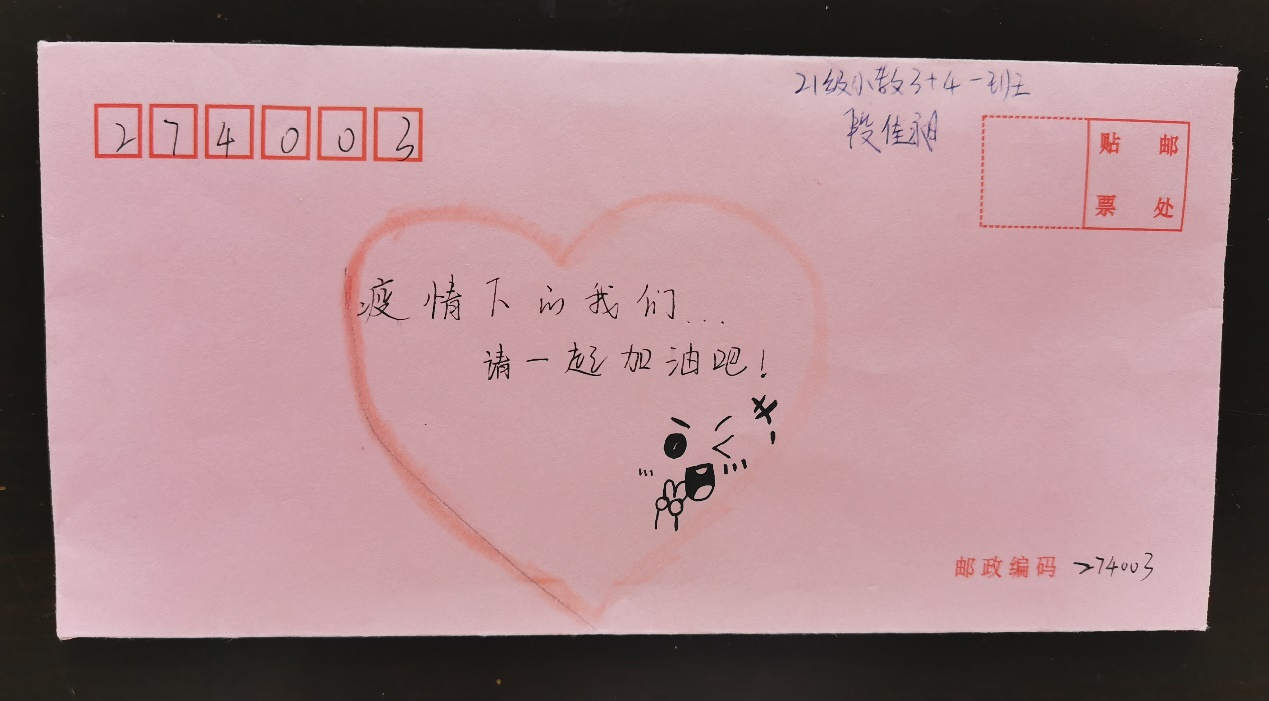 21级小数3+4一班
段佳昶
274003
贴邮
票处
疫情下的我们...
请一起加油吧!
邮政编码 274003